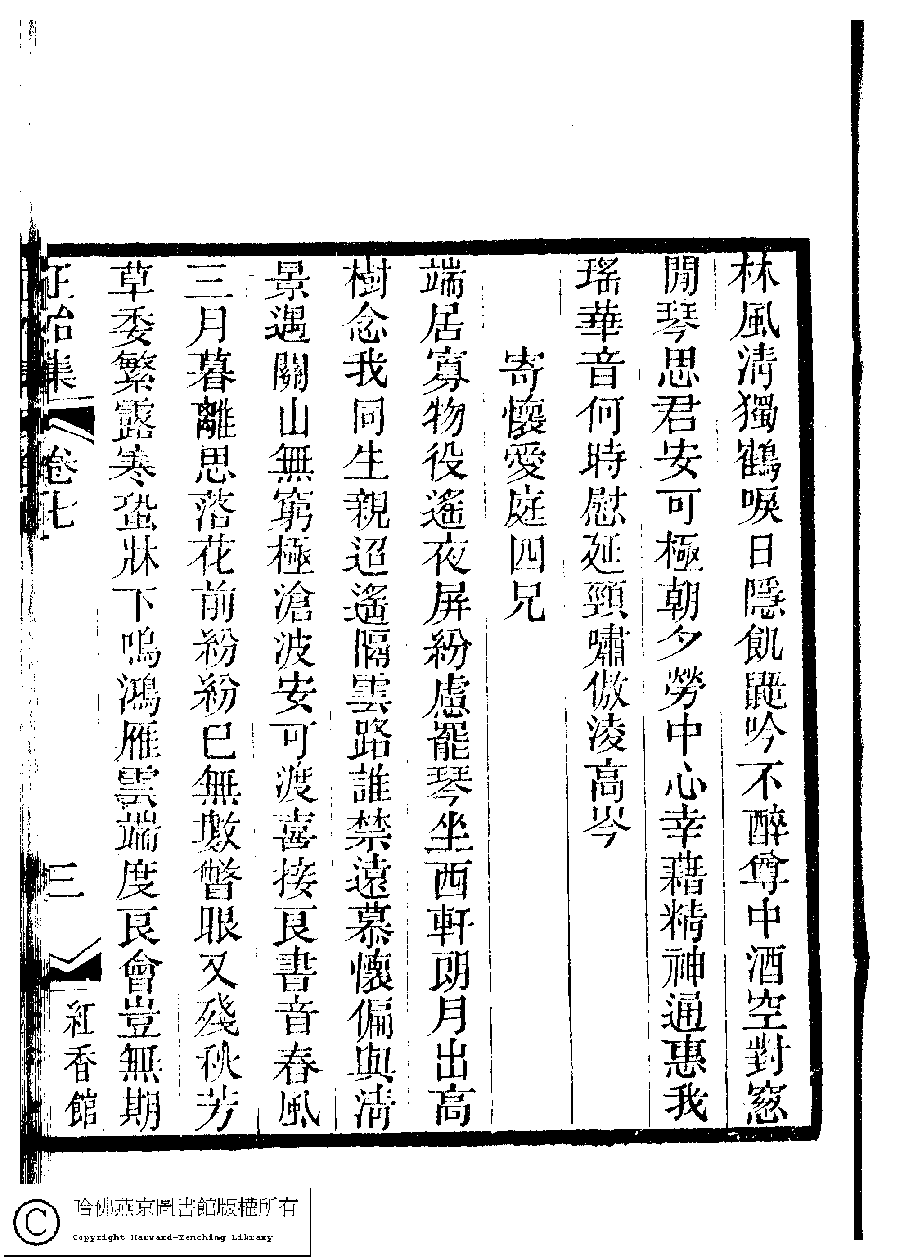 林風淸獨鶴唳日隱飢鼯吟不醉尊中酒空對窓
閒琴思君安可極朝夕勞中心幸藉精神通惠我
瑤華音何時慰延頸嘯傲淩高岑
寄懷愛庭四兄
端居寡物役遙夜屏紛慮罷琴坐西軒朗月出高
樹念我同生親迢遙隔雲路誰禁遠慕懷偏與淸
景遇關山無窮極滄波安可渡喜接良書音春風
三月暮離思落花前紛紛已無數瞥眼又殘秋芳
草委繁露寒蛩牀下鳴鴻雁雲端度良會豈無期
正始集 卷七 三 紅香館
哈佛燕京圖書館版權所有
Copyright Harvard-Yenching Library
©